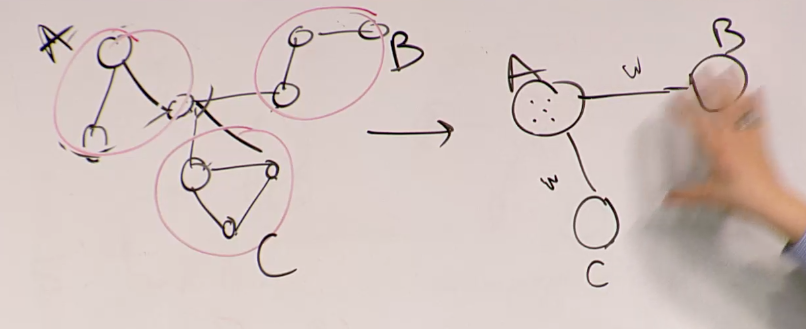 A
B
C
A
w
B
w
C